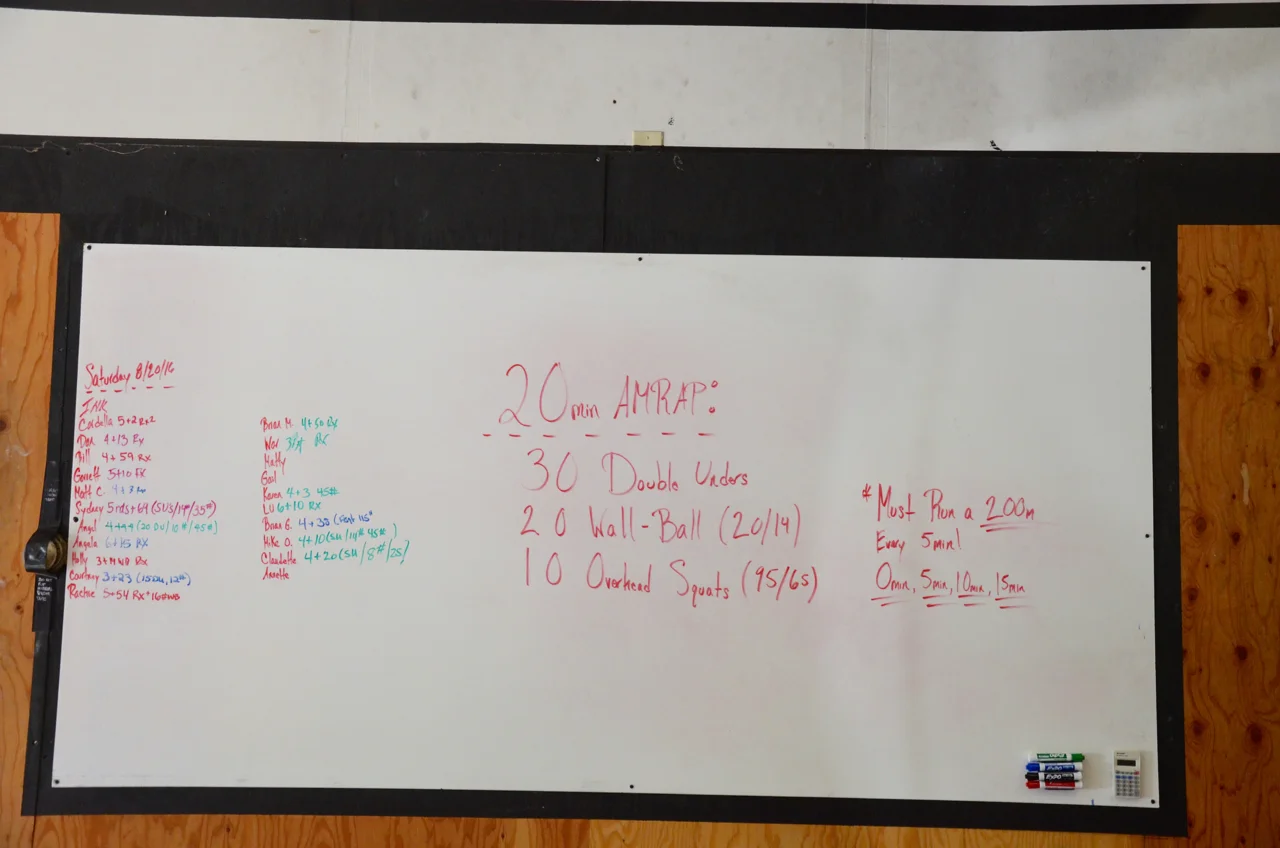 Saturday 8/20/16
Cordella 5+2 Rx
Dan 4+13 Rx
Bill 4+59 Rx
Garrett 5+10 Rx
Matt C. 4+3 Rx
Sydney 5rds+64 (SU3/14#/35#)
Angel 4+44 (20 DU/10#/45#)
Angela 6+15 Rx
Holly 3+ Rx
Courtney 3+23 (15DU, 12#)
5+54 Rx+16#WB
Brian M. 4+50 Rx
Rx
Matty
Gail
Karen 4+3 45#
LU 6+10 Rx
Brian G. 4+38 115#
Mike O. 4+10 (SU/14# 45#)
Claudette 4+20 (SU/8#/25)
Annette
20min AMRAP:
30 Double Unders
20 Wall-Ball (20/14)
10 Overhead Squats (95/65)
* Must Run a 200m
Every 5min!
0min, 5min, 10min, 15min
EXPO